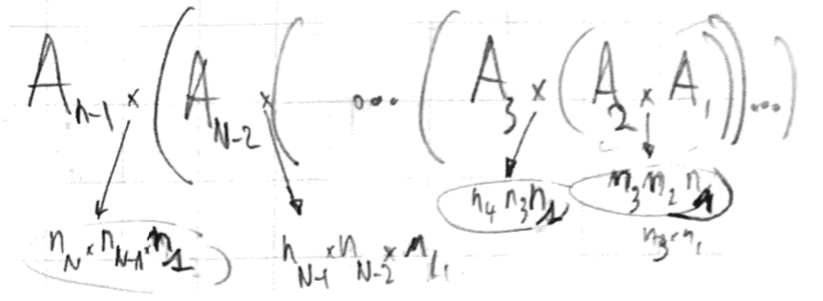 A_{n-1} × (A_{N-2} × ( ... (A_3 × (A_2 × A_1)) ...)
n_N × n_{N-1} × n_1 n_{N-1} × n_{N-2} × n_1 n_4 n_3 n_1 n_3 n_2 n_1
n_3 × n_1